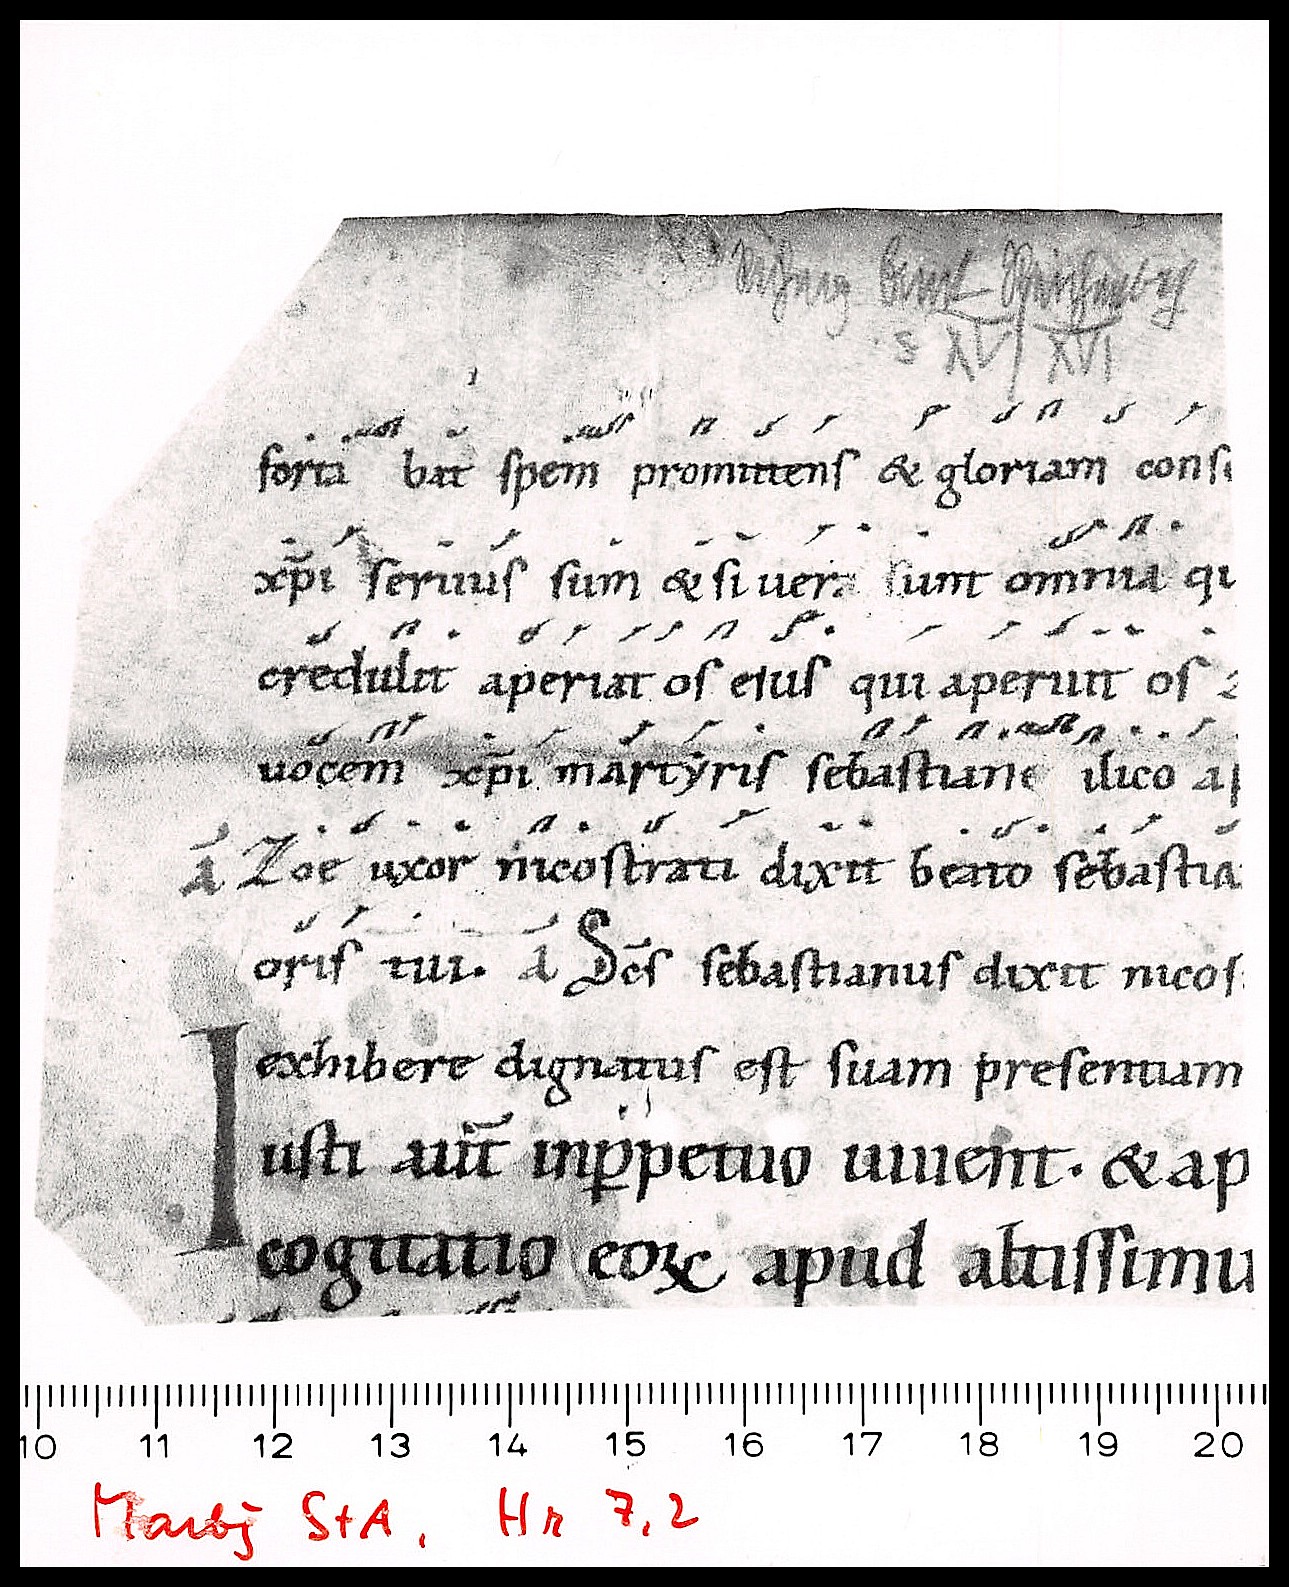 s XV/XVI
fortabat spem promittens & gloriam consi
xp̄i seruus sum & si uera sunt omnia qu
credulit aperiat os eius qui aperuit os z
uocem xp̄i martẏris sebastiane ilico ap
ā Zoe uxor nicostrati dixit beato sebastia
oris tui. ā Sc̄s sebastianus dixit nicos
exhibere dignatus est suam presentiam
Iusti aut̄ inꝑpetuo uiuent. & ap
cogitatio eoꝝ apud altissimu
10 11 12 13 14 15 16 17 18 19 20
Marbg StA, Hr 7,2